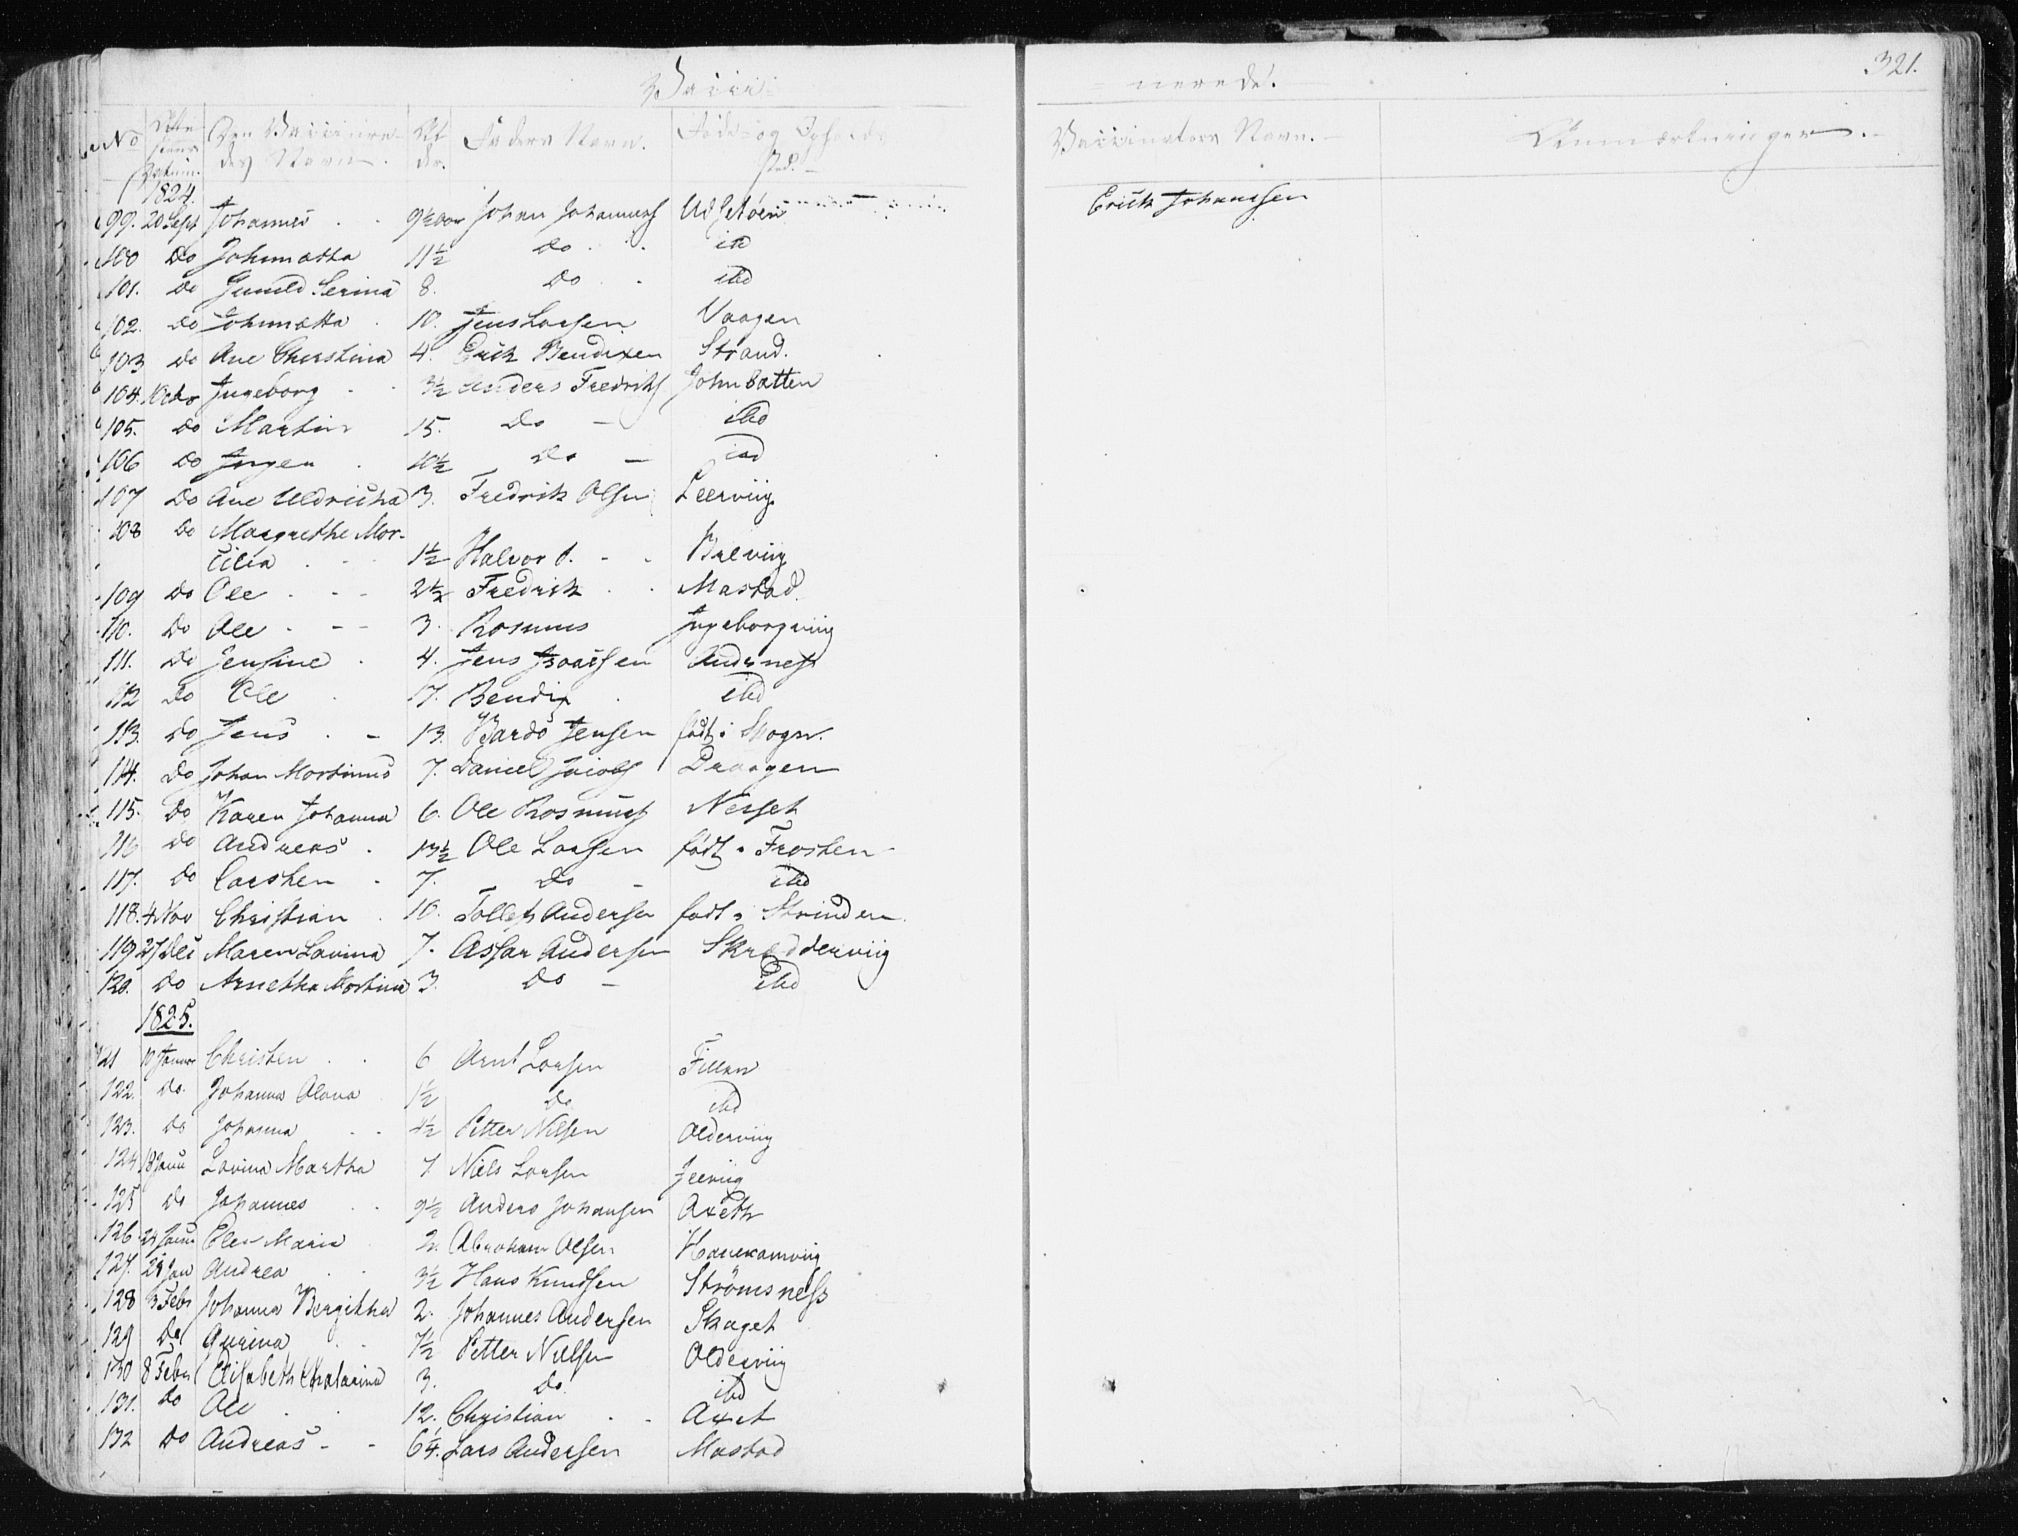 Vacci-
nerede.
321.
No Den Vaccinere- Al Faders Navn. Føde- og Opholds Vaccinateurs Navn. Anmærkninger.
des Navn. der. Sted.
1824.
99. 20 Sept Johannes 9½ aar Johan Johannes Udsetøen Erick Johanssen
100 do Johnmatta 11½ do ibd
101. do Gunild Serina 8. do ibd
102. do Johnmatta 10. Jens Larsen Vaagen
103 do Ane Cherstina 4. Erick Bendixen Strand.
104. Ingeborg 3½ Anders Fredriks Johnsatten
105. do Martin 15. do ibd
106 do Jørgen 10½ do ibd
107 do Ane Uldricha 3. Fredrik Olsen Leerviig
108 do Margrethe Mor-
cilia 1½ Halvor Brevig
109 do Ole 2½ Fredrik Mastad
110. do Ole 3. Rasmus Ingeborgviig
111. do Jensine 4. Jens Isaacsen Andsness
112 do Ole 17. Bendix ibd
113. do Jens 13. Bardo Jensen født i Skogn.
114. do Johan Martinus 7. Daniel Jacobs Draagen
115. do Karen Johanna 6. Ole Rasmuss Nesset
116 do Andreas 13½ Ole Larsen født i Frosten
117. do Carsten 7. do ibd
118. 4 Nov Christian 10. Tollef Andersen født i Strinden
119 27 Dec Maren Lovina 7. Assar Andersen Skrædderviig
120. do Arnetha Martina 3. do ibd
1825.
121 10 Januar Christen 6 Arnt Larsen Fillan
122. do Johanna Olava 1½ do ibd
123. do Johanna 4½ Petter Nilsen Olderviig
124 18 Janu Lovina Martha 7 Niels Larsen Jeeviig
125 do Johannes 9½ Anders Johansen Axeth
126. 24 Janu Elen Maria 2. Abraham Olsen Hanekamviig
127. 28 Jan Andrea 3½ Hans Knudsen Strømsness
128 3 Febr Johanna Bergitha 2. Johannes Andersen Skaget
129 do Gurina 7½ Petter Nielsen Olderviig
130 8 Febr Elisabeth Chatarina 3. do ibd
131. do Ole 12. Christian Axet
132 do Andreas 6¼. Lars Andersen Mastad